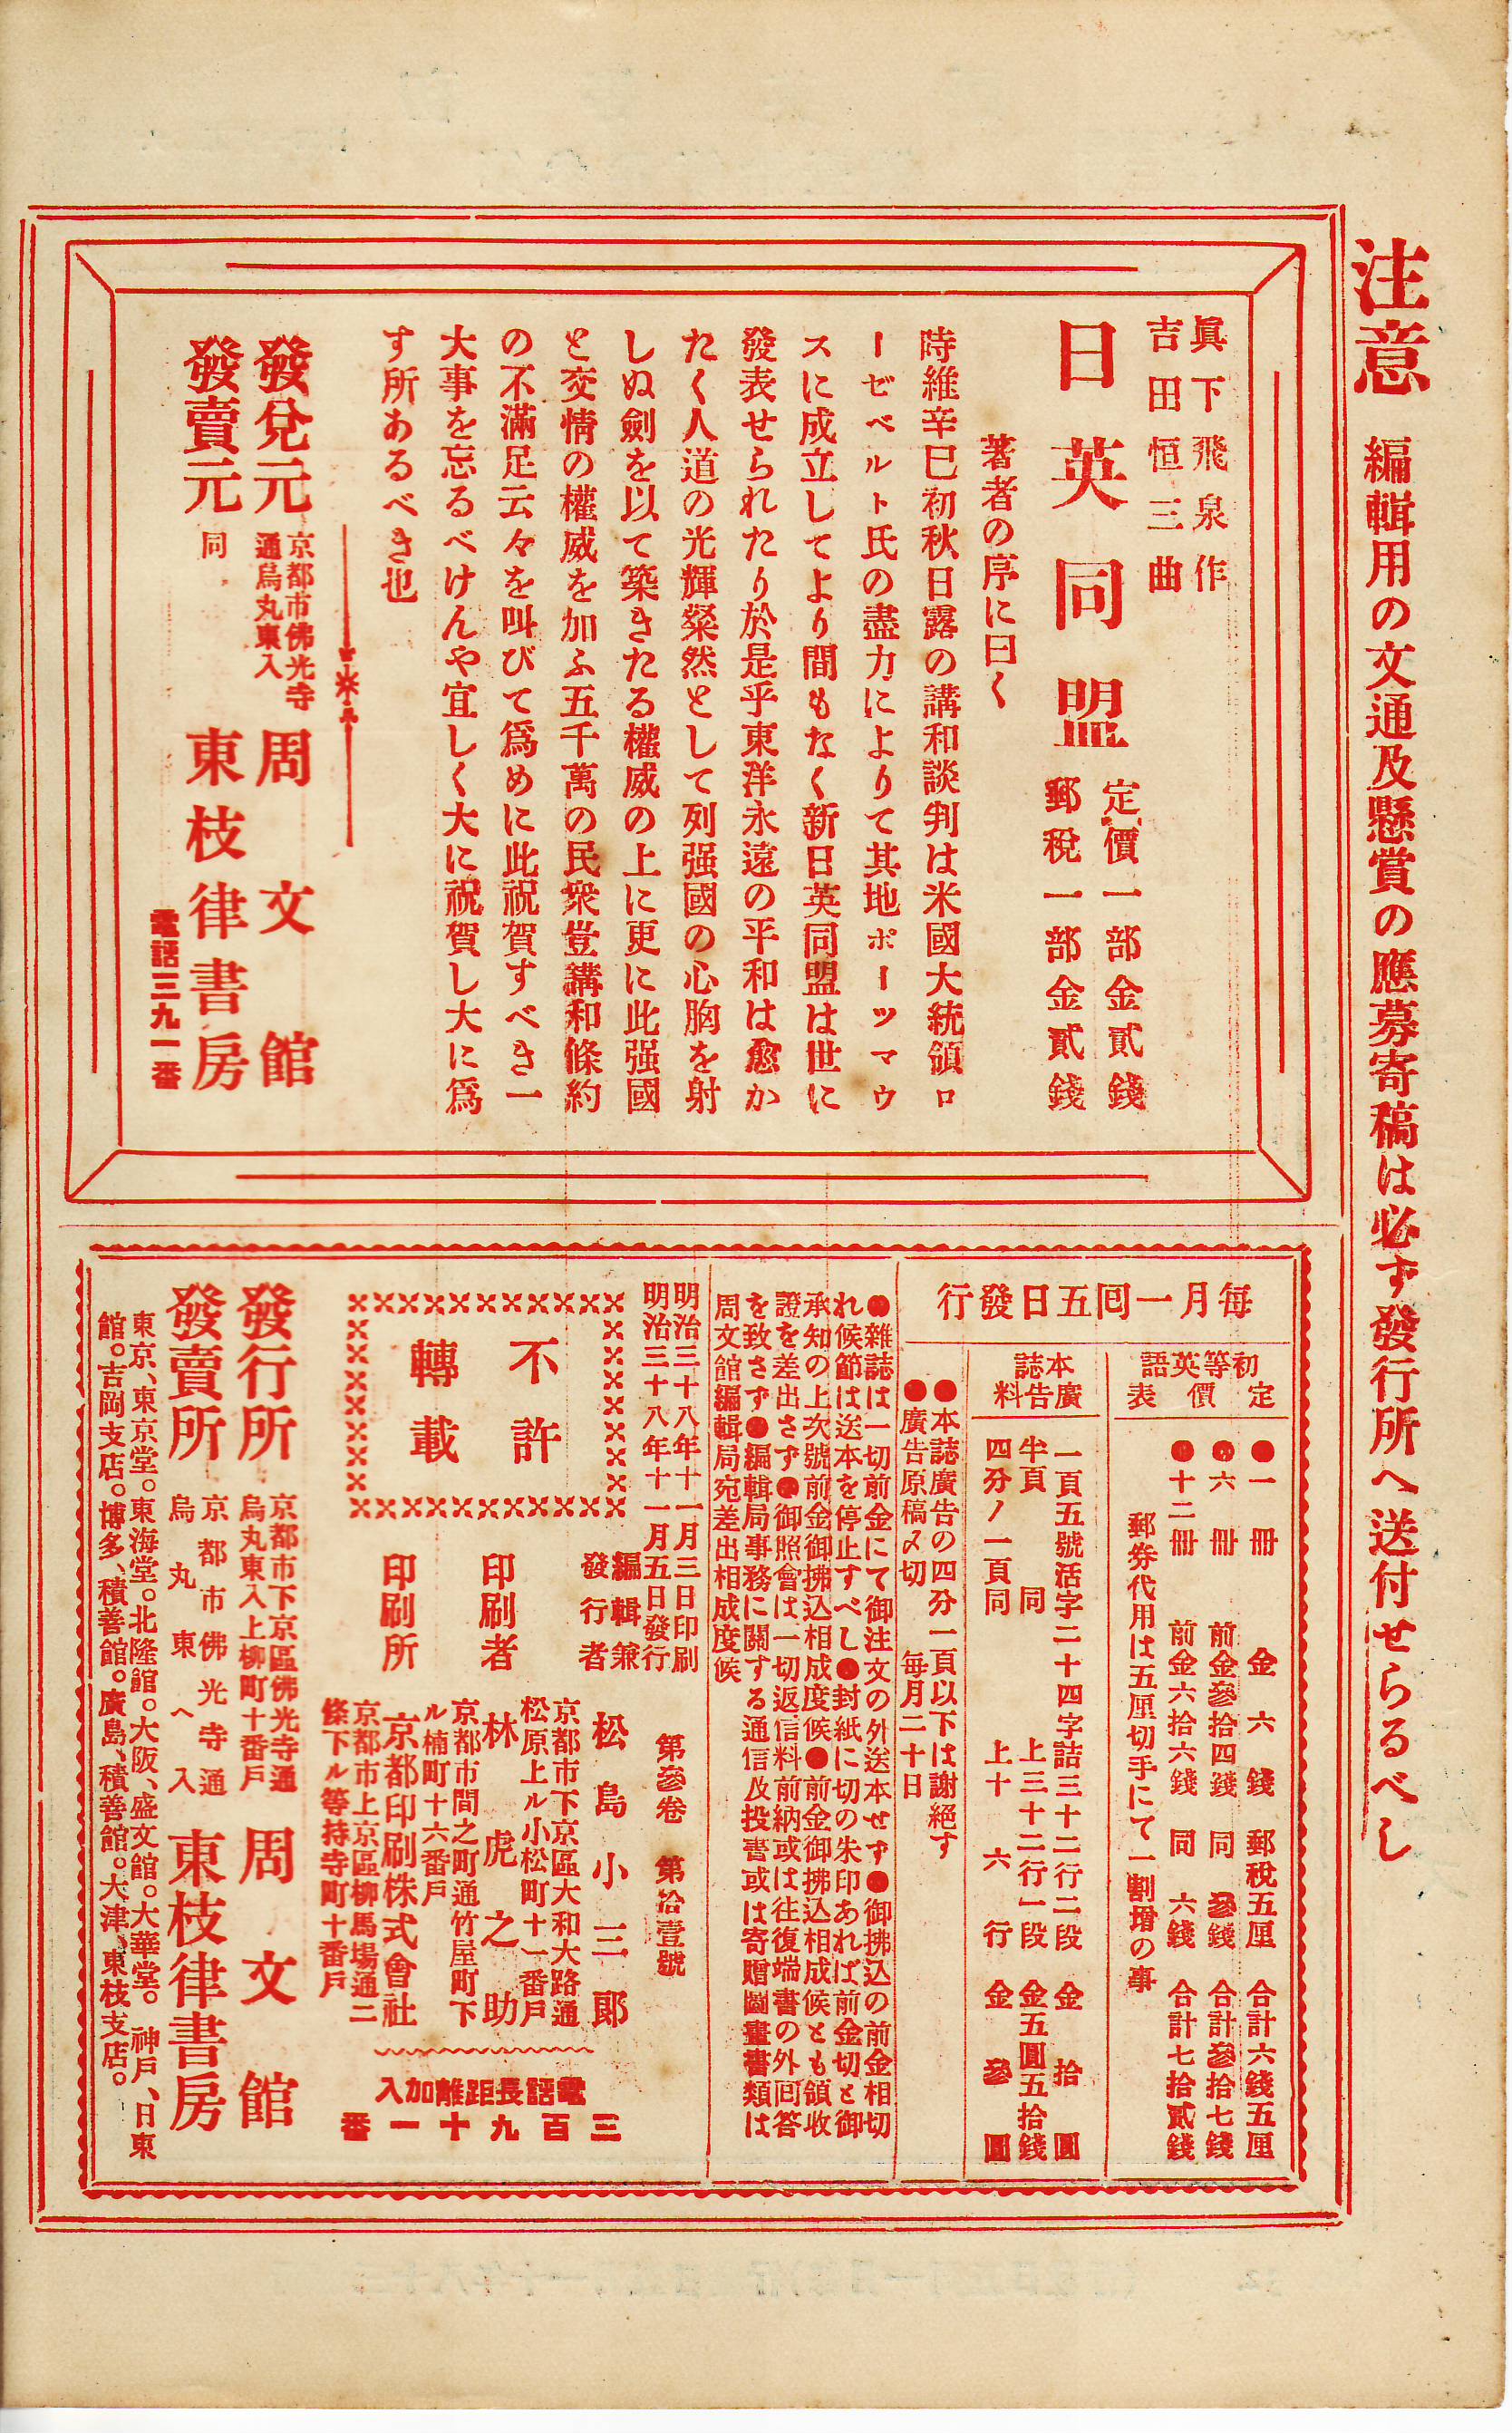 注意 編輯用の文通及懸賞の應募寄稿は必ず發行所へ送付せらるべし
眞下飛泉作
吉田恒三曲
日英同盟
定價一部金貳錢
郵稅一部金貳錢
著者の序に曰く
時維辛巳初秋日露の講和談判は米國大統領ロ
ーゼベルト氏の盡力によりて其地ポーツマウ
スに成立してより間もなく新日英同盟は世に
發表せられたり於是乎東洋永遠の平和は愈か
たく人道の光輝粲然として列强國の心胸を射
しぬ劍を以て築きたる權威の上に更に此强國
と交情の權威を加ふ五千萬の民衆豈講和條約
の不滿足云々を叫びて爲めに此祝賀すべき一
大事を忘るべけんや宜しく大に祝賀し大に爲
す所あるべき也
發兌元 京都市佛光寺
通烏丸東入 周文館
發賣元 同 東枝律書房
電話三九一番
每月一囘五日發行
初等英語
定價表
●一冊 金六錢 郵稅五厘 合計六錢五厘
●六冊 前金參拾四錢 同 參錢 合計參拾七錢
●十二冊 前金六拾六錢 同 六錢 合計七拾貳錢
郵劵代用は五厘切手にて一割增の事
本誌
廣告料
一頁五號活字二十四字詰三十二行二段 金拾圓
半頁 同 上三十二行一段 金五圓五拾錢
四分ノ一頁同 上十六行 金參圓
●本誌廣告の四分一頁以下は謝絕す
●廣告原稿〆切 每月二十日
●雜誌は一切前金にて御注文の外送本せず●御拂込の前金相切
れ候節は送本を停止すべし●封紙に切の朱印あれば前金切と御
承知の上次號前金御拂込相成度候●前金御拂込相成候とも領收
證を差出さず●御照會は一切返信料前納或は往復端書の外囘答
を致さず●編輯局事務に關する通信及投書或は寄贈圖畫書類は
周文館編輯局宛差出相成度候
明治三十八年十一月三日印刷
明治三十八年十一月五日發行
第參卷 第拾壹號
不許
轉載
編輯兼
發行者
松島小三郞
京都市下京區大和大路通
松原上ル小松町十一番戶
印刷者
林虎之助
京都市間之町通竹屋町下
ル楠町十六番戶
印刷所
京都印刷株式會社
京都市上京區柳馬場通二
條下ル等持寺町十番戶
電話長距離加入
三百九十一番
發行所 京都市下京區佛光寺通
烏丸東入上柳町十番戶 周文館
發賣所 京都市佛光寺通
烏丸東へ入 東枝律書房
東京、東京堂。東海堂。北隆館。大阪、盛文館。大華堂。神戶、日東
館。吉岡支店。博多、積善館。廣島、積善館。大津、東枝支店。